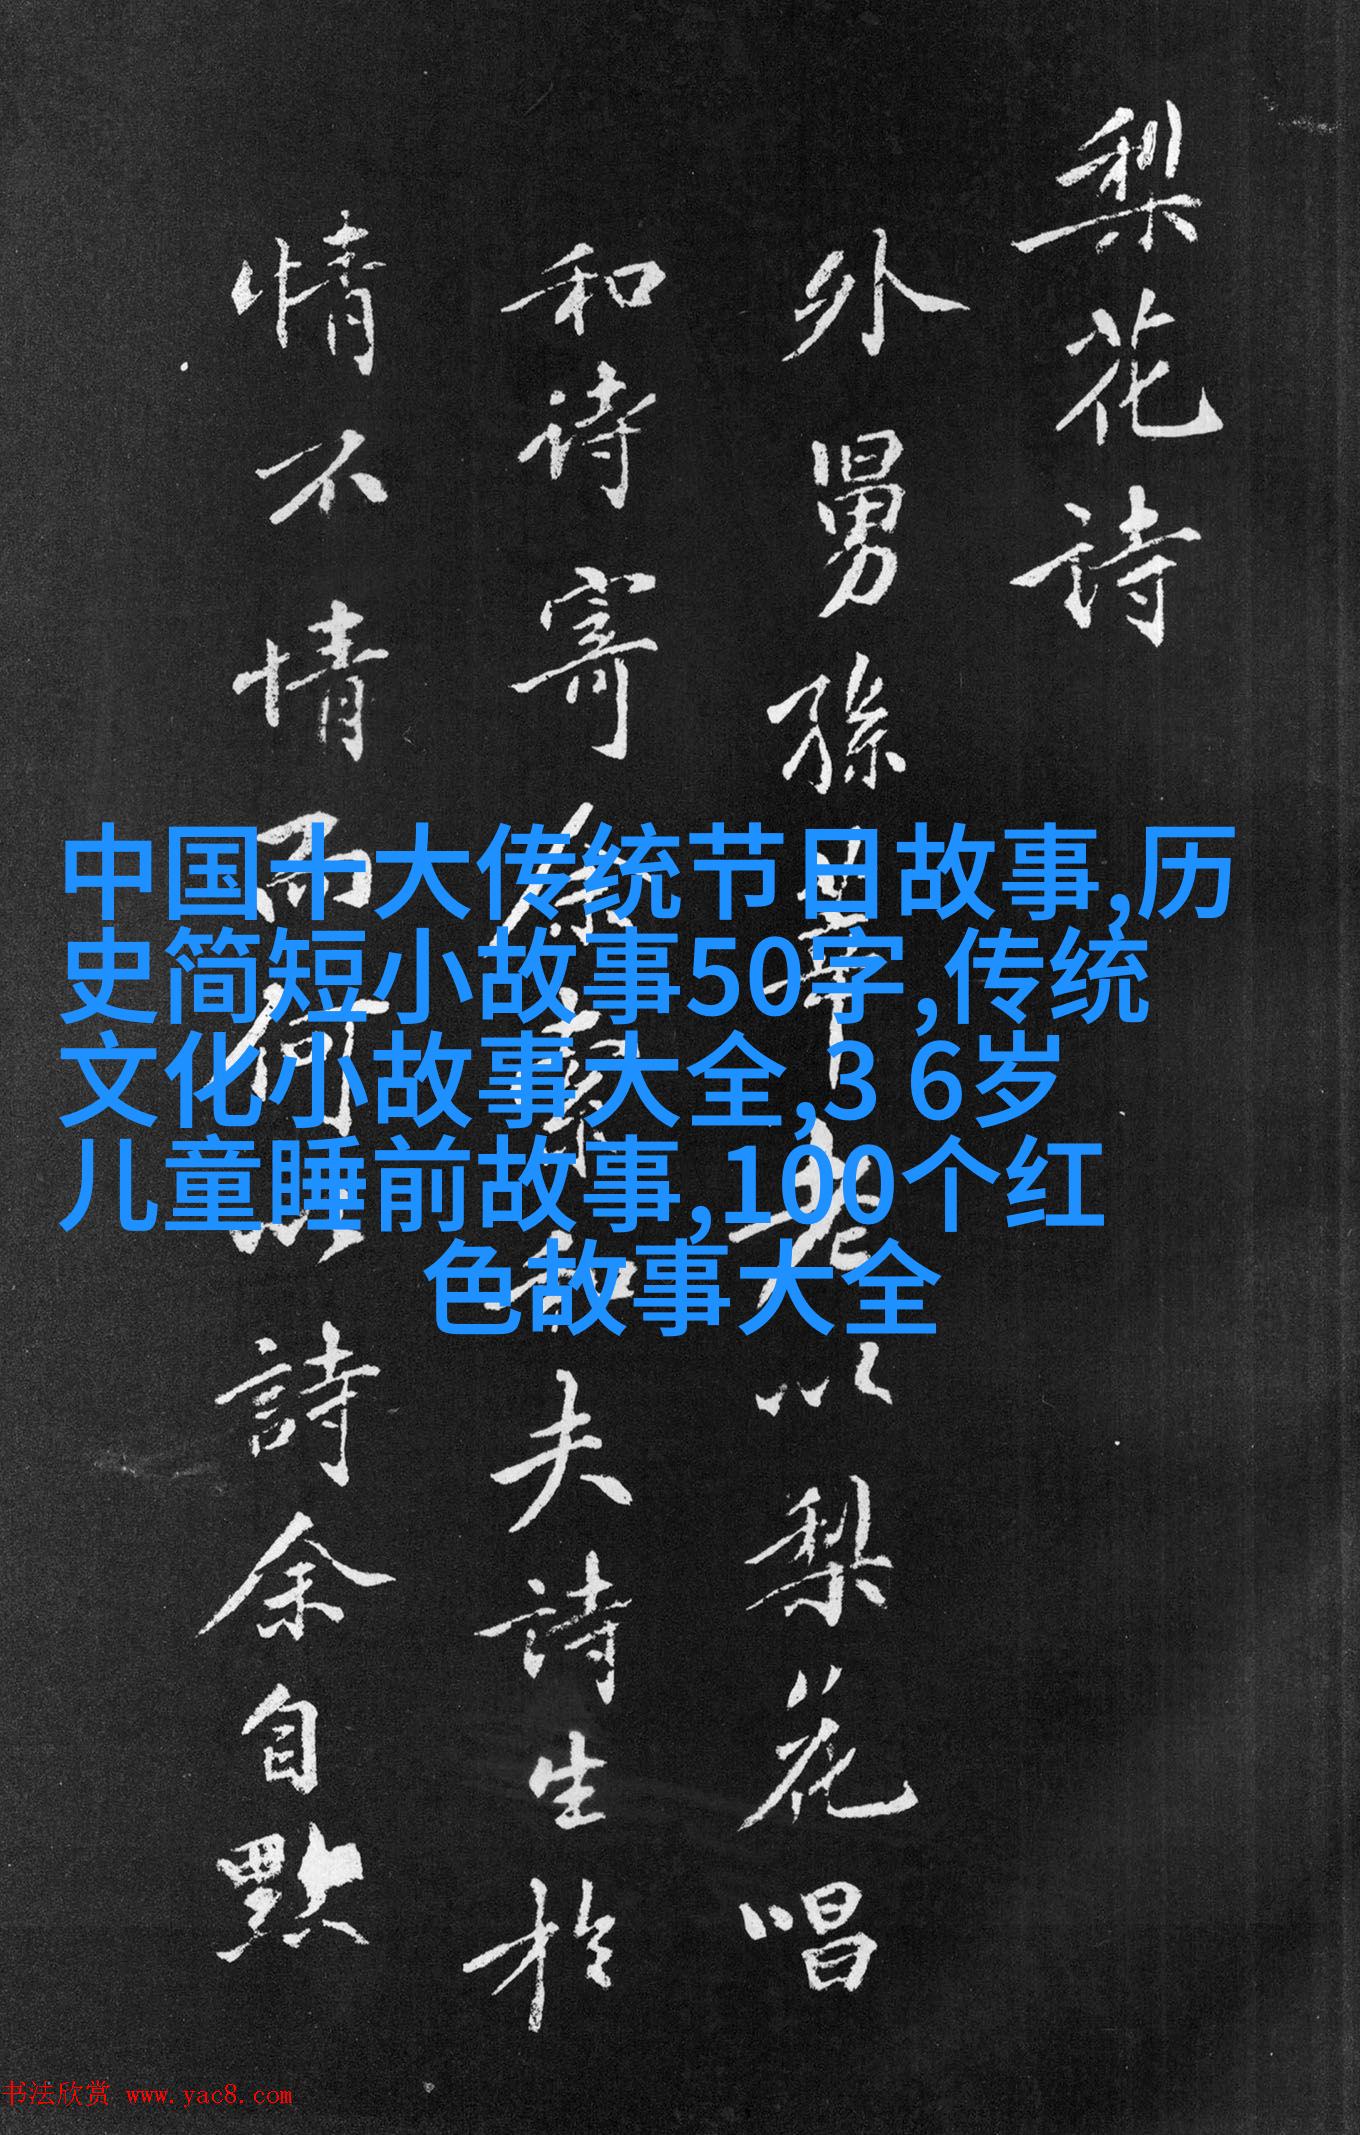 梨花詩
外舅孫莘老以梨花唱
和诗寄徐和夫詩生於
情不情而何以詩余自點
中国十大传统节日故事,历
史简短小故事50字,传统
文化小故事大全,3 6岁
儿童睡前故事,100个红
色故事大全
书法欣赏 www.yac8.com